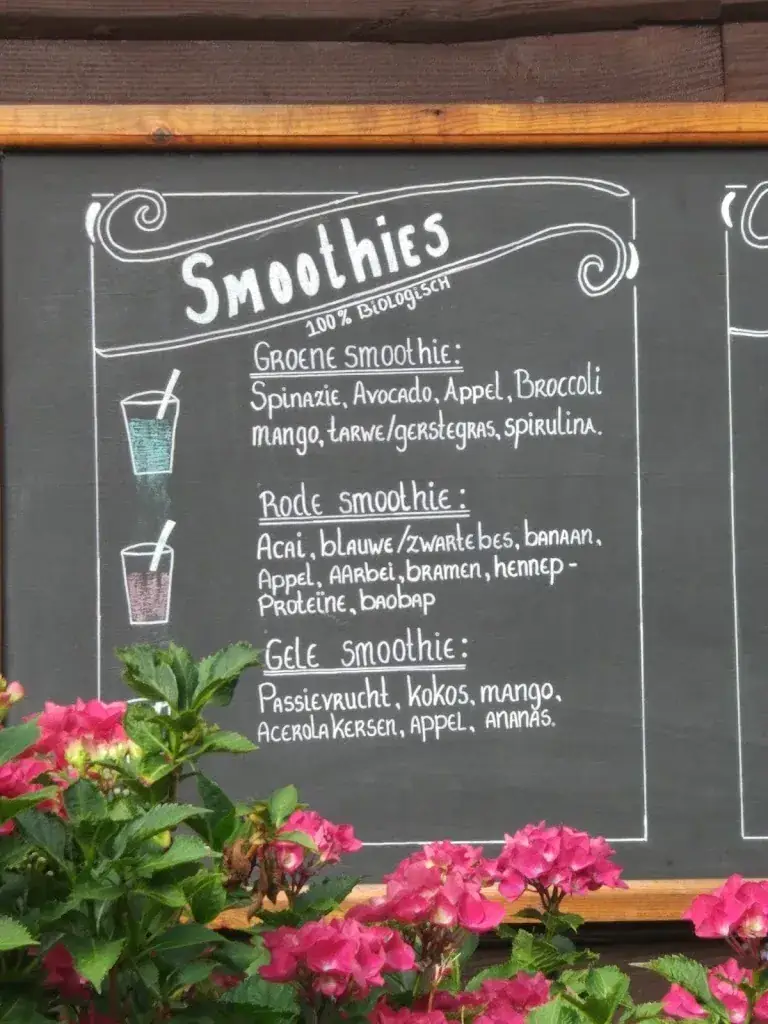 Smoothies
100% Biologisch
Groene smoothie:
Spinazie, Avocado, Appel, Broccoli
mango, tarwe/gerstegras, spirulina.
Rode smoothie:
Acai, blauwe/zwarte bes, banaan,
Appel, AArbei, bramen, hennep-
Proteïne, baobap
Gele smoothie:
Passievrucht, kokos, mango,
Acerola kersen, appel, ananas.